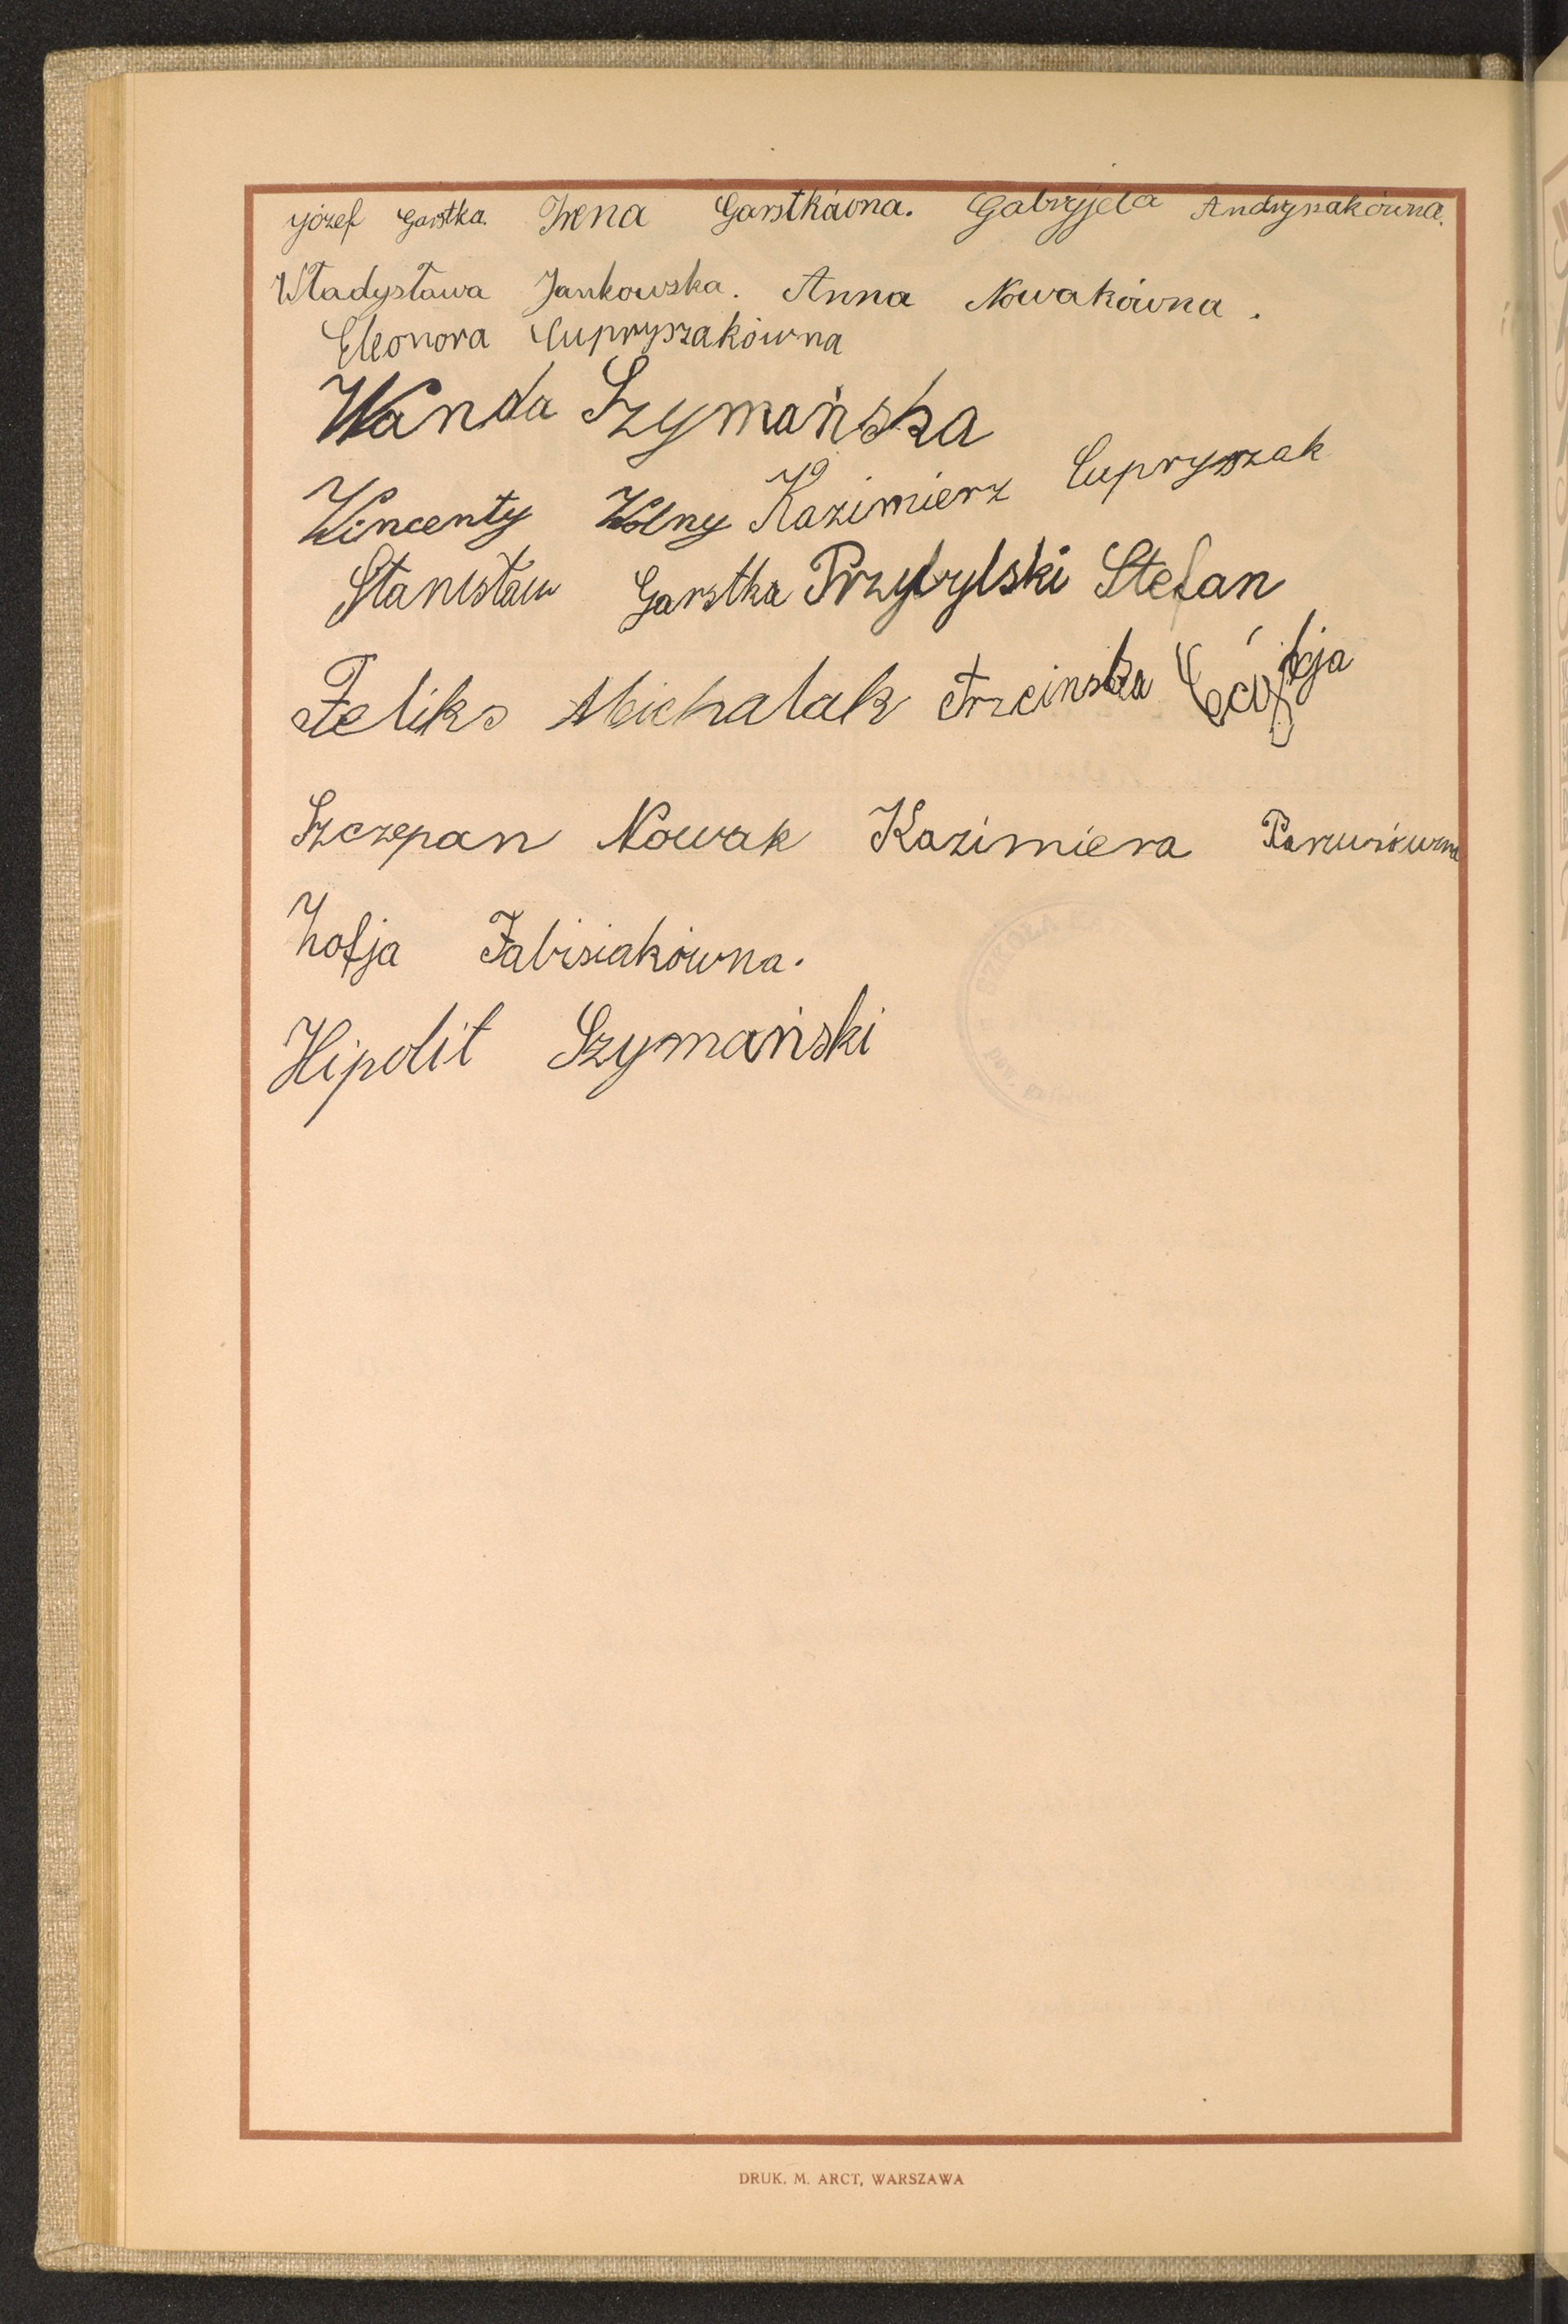 Józef Garstka. Irena Garstkówna. Gabryjela Andryszakówna.
Władysława Jankowska. Anna Nowakówna.
Eleonora Cupryszakówna
Wanda Szymańska
Wincenty Wolny Kazimierz Cupryszak
Stanisław Garstka Przybylski Stefan
Feliks Michalak Trzcinska
Szczepan Nowak Kazimiera
Zofja Fabisiakówna.
Hipolit Szymański
DRUK. M. ARCT, WARSZAWA